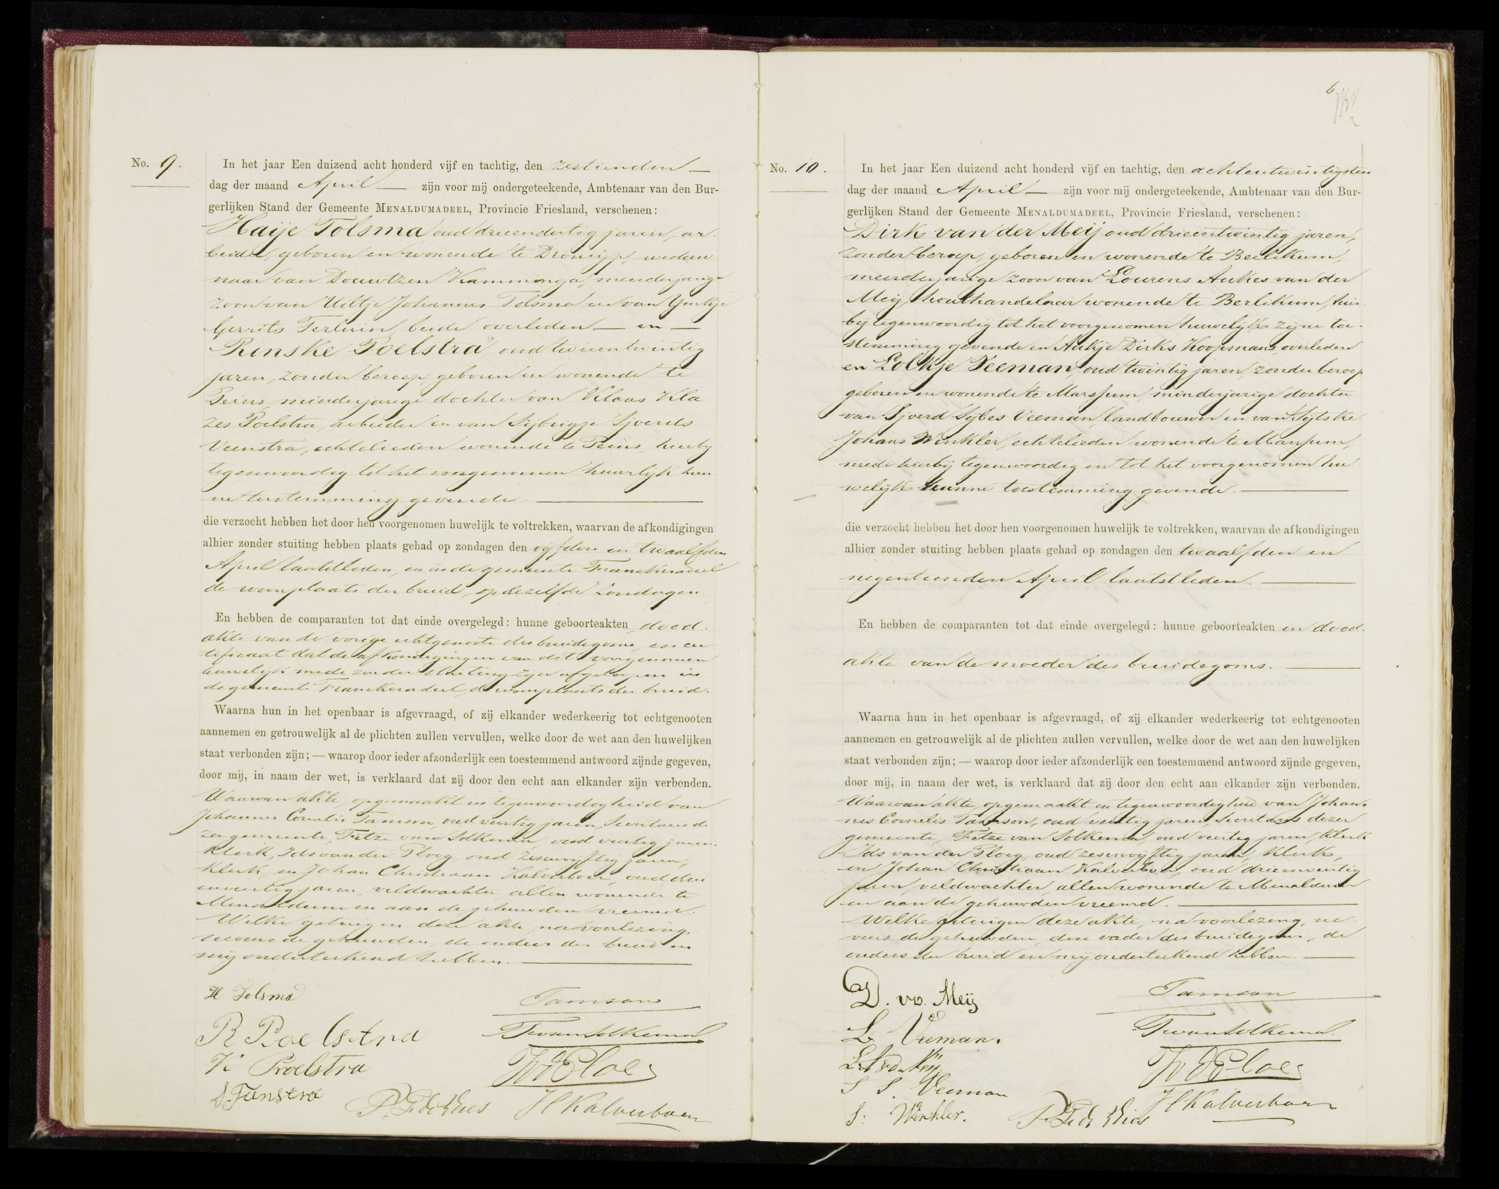 No. 9.
In het jaar Een duizend acht honderd vijf en tachtig, den zestienden
dag der maand April zijn voor mij ondergeteekende, Ambtenaar van den Bur-
gerlijken Stand der Gemeente MENALDUMADEEL, Provincie Friesland, verschenen:
Haije Tolsma oud drieendertig jaren, ar-
beider, geboren en wonende te Dronrijp, weduw
naar van Douwtzen Kamminga, meerderjarige
zoon van Uiltje Johannes Tolsma en van
Gerrits Terluin, beide overleden en
Rinske Poelstra oud tweeentwintig
jaren, zonder beroep geboren en wonende te
Peins, minderjarige dochter van Klaas Kla
zes Poelstra, arbeider en van Sijbrigje Sjoerds
Veenstra, echtelieden wonende te Peins, hierbij
tegenwoordig tot het voorgenomen huwelijk hun
ne toestemming gevende
die verzocht hebben het door hen voorgenomen huwelijk te voltrekken, waarvan de afkondigingen
alhier zonder stuiting hebben plaats gehad op zondagen den vijfden en twaalfden
April laatstleden, en in de gemeente Franekeradeel
de woonplaats der bruid, op dezelfde zondagen
En hebben de comparanten tot dat einde overgelegd: hunne geboorteakten dood-
akte van de vorige echtgenoote des bruidegoms, en cer
tificaat dat de afkondigingen van dit voorgenomen
huwelijk mede zonder stuiting zijn afgeloopen in
de gemeente Franekeradeel, de woonplaats der bruid.
Waarna hun in het openbaar is afgevraagd, of zij elkander wederkeerig tot echtgenooten
aannemen en getrouwelijk al de plichten zullen vervullen, welke door de wet aan den huwelijken
staat verbonden zijn; — waarop door ieder afzonderlijk een toestemmend antwoord zijnde gegeven,
door mij, in naam der wet, is verklaard dat zij door den echt aan elkander zijn verbonden.
Waarvan akte, opgemaakt in tegenwoordigheid van
Johannes Cornelis Tamson, oud veertig jaren, Secretaris de-
zer gemeente, Fetze van Solkema, oud veertig jaren
klerk, Ids van der Ploeg oud zesenvijftig jaren,
klerk, en Johan Christiaan Kalverboer, oud drie
enveertig jaren, veldwachter allen wonende te
Menaldum en aan de gehuwden vreemd.
Welke getuigen deze akte, na voorlezing,
nevens de gehuwden, de ouders der bruid en
mij onderteekend hebben.
H Tolsma
Tamson
R Poelstra
F van Solkema
K Poelstra
IvdPloeg
S. Fanstra
JKalverboer
No. 10.
In het jaar Een duizend acht honderd vijf en tachtig, den achtentwintigsten
dag der maand April zijn voor mij ondergeteekende, Ambtenaar van den Bur-
gerlijken Stand der Gemeente MENALDUMADEEL, Provincie Friesland, verschenen:
Dirk van der Meij oud drieentwintig jaren,
zonder beroep geboren en wonende te Berlikum,
meerderjarige zoon van Lourens Aukes van der
Meij, houthandelaar wonende te Berlikum, hier
bij tegenwoordig tot het voorgenomen huwelijk zijne toe-
stemming gevende en Aukje Dirks Koopmans overleden
en Lolkje Veeman oud twintig jaren, zonder beroep
geboren en wonende te Marssum, minderjarige dochter
van Sjoerd Sijbes Veeman landbouwer en van Sijtske
Johans Winkler, echtelieden wonende te Marssum,
mede hierbij tegenwoordig en tot het voorgenomen hu
welijk hunne toestemming gevende.
die verzocht hebben het door hen voorgenomen huwelijk te voltrekken, waarvan de afkondigingen
alhier zonder stuiting hebben plaats gehad op zondagen den twaalfden en
negentienden April laatstleden.
En hebben de comparanten tot dat einde overgelegd: hunne geboorteakten en dood-
akte van de moeder des bruidegoms.
Waarna hun in het openbaar is afgevraagd, of zij elkander wederkeerig tot echtgenooten
aannemen en getrouwelijk al de plichten zullen vervullen, welke door de wet aan den huwelijken
staat verbonden zijn; — waarop door ieder afzonderlijk een toestemmend antwoord zijnde gegeven,
door mij, in naam der wet, is verklaard dat zij door den echt aan elkander zijn verbonden.
Waarvan akte, opgemaakt in tegenwoordigheid van Johan-
nes Cornelis Tamson, oud veertig jaren Secretaris dezer
gemeente, Fetze van Solkema, oud veertig jaren, klerk
Ids van der Ploeg, oud zesenvijftig jaren, klerk,
en Johan Christiaan Kalverboer, oud drieenveertig
jaren, veldwachter allen wonende te Menaldum
en aan de gehuwden vreemd.
Welke getuigen deze akte, na voorlezing, ne
vens de gehuwden, den vader des bruidegoms, de
ouders der bruid en mij onderteekend hebben.
D. vd. Meij
Tamson
L Veeman.
F van Solkema
IvdPloeg
S S. Veeman
JKalverboer
S: Winkler.